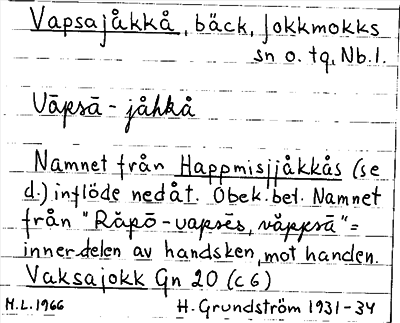 Vapsajåkkå, bäck, Jokkmokks
sn o. tg, Nb.l.
Vāpsā - jåhkå
Namnet från Happmisjjåkkås (se
d.) inflöde nedåt. Obek. bet. Namnet
från "Răpō-vapsēs, văppsā" =
innerdelen av handsken, mot handen.
Vaksajokk Gn 20 (c 6)
M.L. 1966 H. Grundström 1931-34